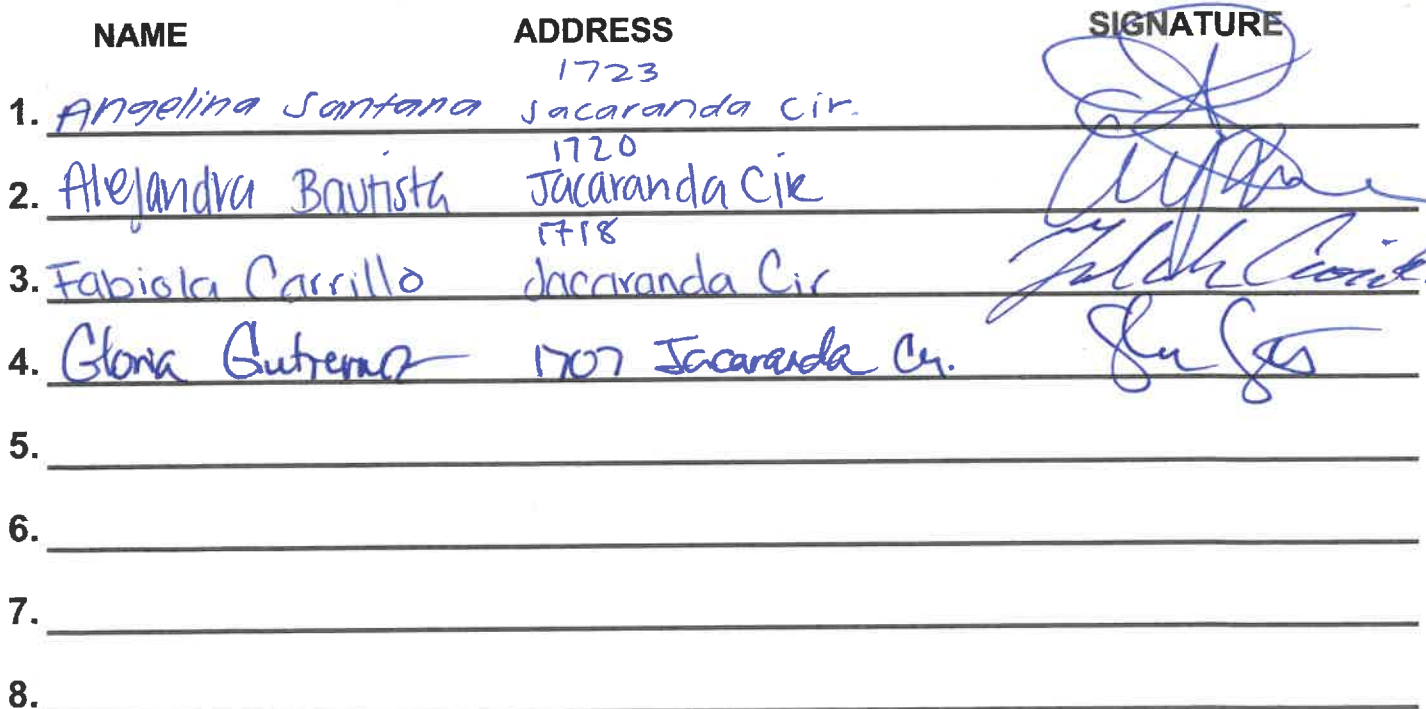 NAME ADDRESS SIGNATURE
1723
1. Angelina Santana Jacaranda Cir.
1720
2. Alejandra Bautista Jacaranda Cir
1718
3. Fabiola Carrillo Jacaranda Cir
4. Gloria Gutierrez 1707 Jacaranda Cir.
5.
6.
7.
8.